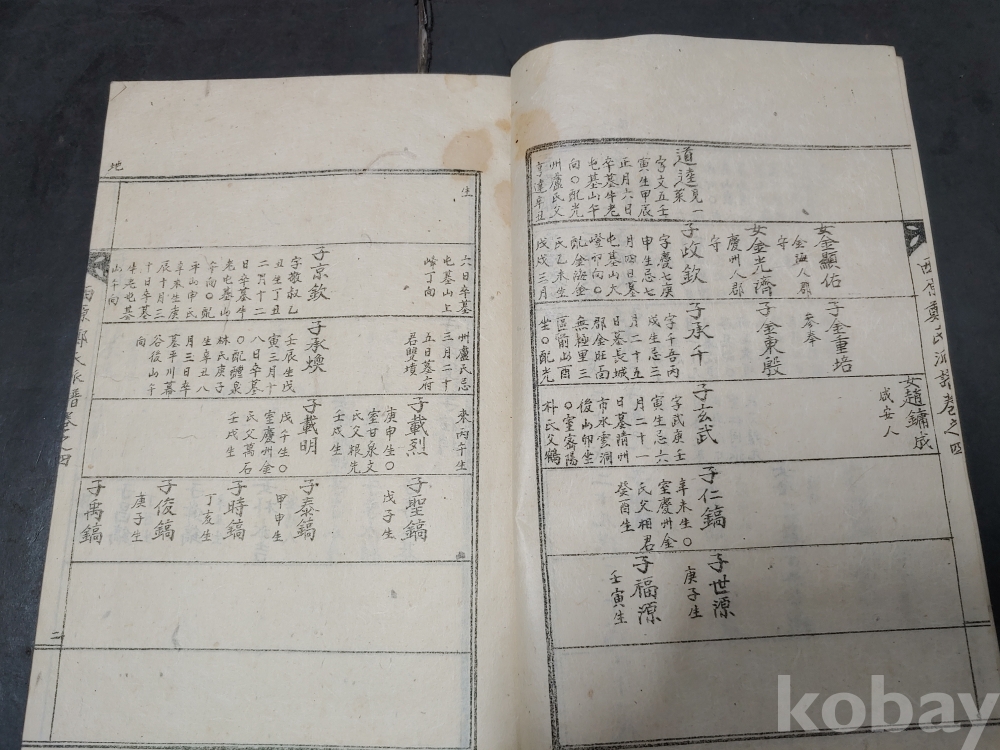 道逵見一
系
字文五壬
寅生甲辰
正月六日
卒墓牛老
屯墓山午
向〇配光
州盧氏父
亨達辛丑
女金顯佑
金海人郡
守
女金光濟
慶州人郡
守
子政欽
字慶七庚
申生忌七
月四日墓
屯墓山大
嶝卯向〇
配金海金
氏乙未生
戊戌三月
子金重培
參奉
子金東殷
子承千
字千吾丙
戌生忌三
月二十五
日墓長城
郡金旺面
無鯉里三
區前山酉
坐〇配光
女趙鏞成
咸安人
子玄武
字武庚壬
寅生忌六
月二十一
日墓隋州
市水雲洞
後山卯坐
〇室密陽
朴氏父鶴
子仁鎬
辛未生〇
室慶州金
氏父相君
癸酉生
子世源
庚子生
子福源
壬寅生
西原鄭氏派譜卷之四
地
生
六日卒墓
屯墓山上
峰丁向
子京欽
字敬叔乙
丑生丁丑
二月十二
日卒墓牛
老屯墓山
午向〇配
平山申氏
辛未生庚
辰十月三
十日卒墓
牛老屯墓
山午向
州盧氏忌
三月二十
五日墓府
君雙墳
子承煥
壬辰生戊
寅三月十
八日卒墓
〇配醴泉
林氏庚子
生辛丑八
月三日卒
墓平川幕
谷後山午
向
來丙午生
子載烈
庚申生〇
室甘泉文
氏父根先
壬戌生
子載明
戊午生〇
室慶州金
氏父萬石
壬戌生
子聖鎬
戊子生
子泰鎬
甲申生
子時鎬
丁亥生
子俊鎬
庚子生
子禹鎬
西原鄭氏派譜卷之四
二
kobay